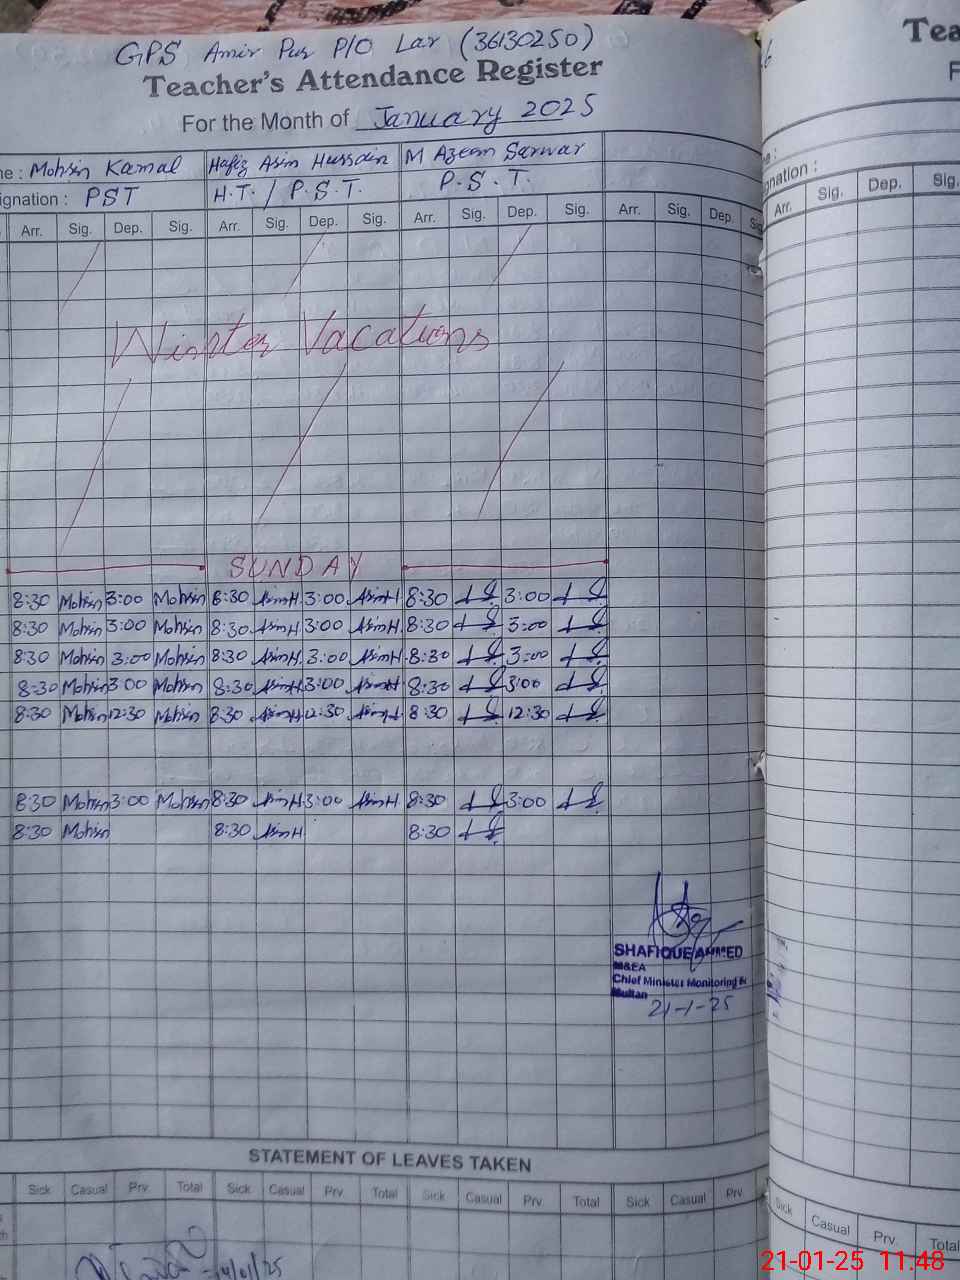 GPS Amir Pur P/O Lar (36130250)
Teacher's Attendance Register
For the Month of January 2025
ne : Mohsin Kamal Hafiz Asim Hussain M Azeem Sarwar
signation : PST H.T. / P.S.T. P.S.T.
Arr. Sig. Dep. Sig. Arr. Sig. Dep. Sig. Arr. Sig. Dep. Sig. Arr. Sig. Dep. Sig
Winter Vacations
SUNDAY
8:30 Mohsin 3:00 Mohsin 8:30 AsimH 3:00 AsimH 8:30 3:00
8:30 Mohsin 3:00 Mohsin 8:30 AsimH 3:00 AsimH 8:30 3:00
8:30 Mohsin 3:00 Mohsin 8:30 AsimH 3:00 AsimH 8:30 3:00
8:30 Mohsin 3:00 Mohsin 8:30 AsimH 3:00 AsimH 8:30 3:00
8:30 Mohsin 12:30 Mohsin 8:30 AsimH 12:30 AsimH 8:30 12:30
8:30 Mohsin 3:00 Mohsin 8:30 AsimH 3:00 AsimH 8:30 3:00
8:30 Mohsin 8:30 AsimH 8:30
SHAFIQUE AHMED
M&EA
Chief Minister Monitoring F
Multan
21-1-25
STATEMENT OF LEAVES TAKEN
Sick Casual Prv Total Sick Casual Prv. Total Sick Casual Prv. Total Sick Casual Prv
Tea
F
gnation :
Arr. Sig. Dep. Sig.
Sick Casual Prv. Total
21-01-25 11.48